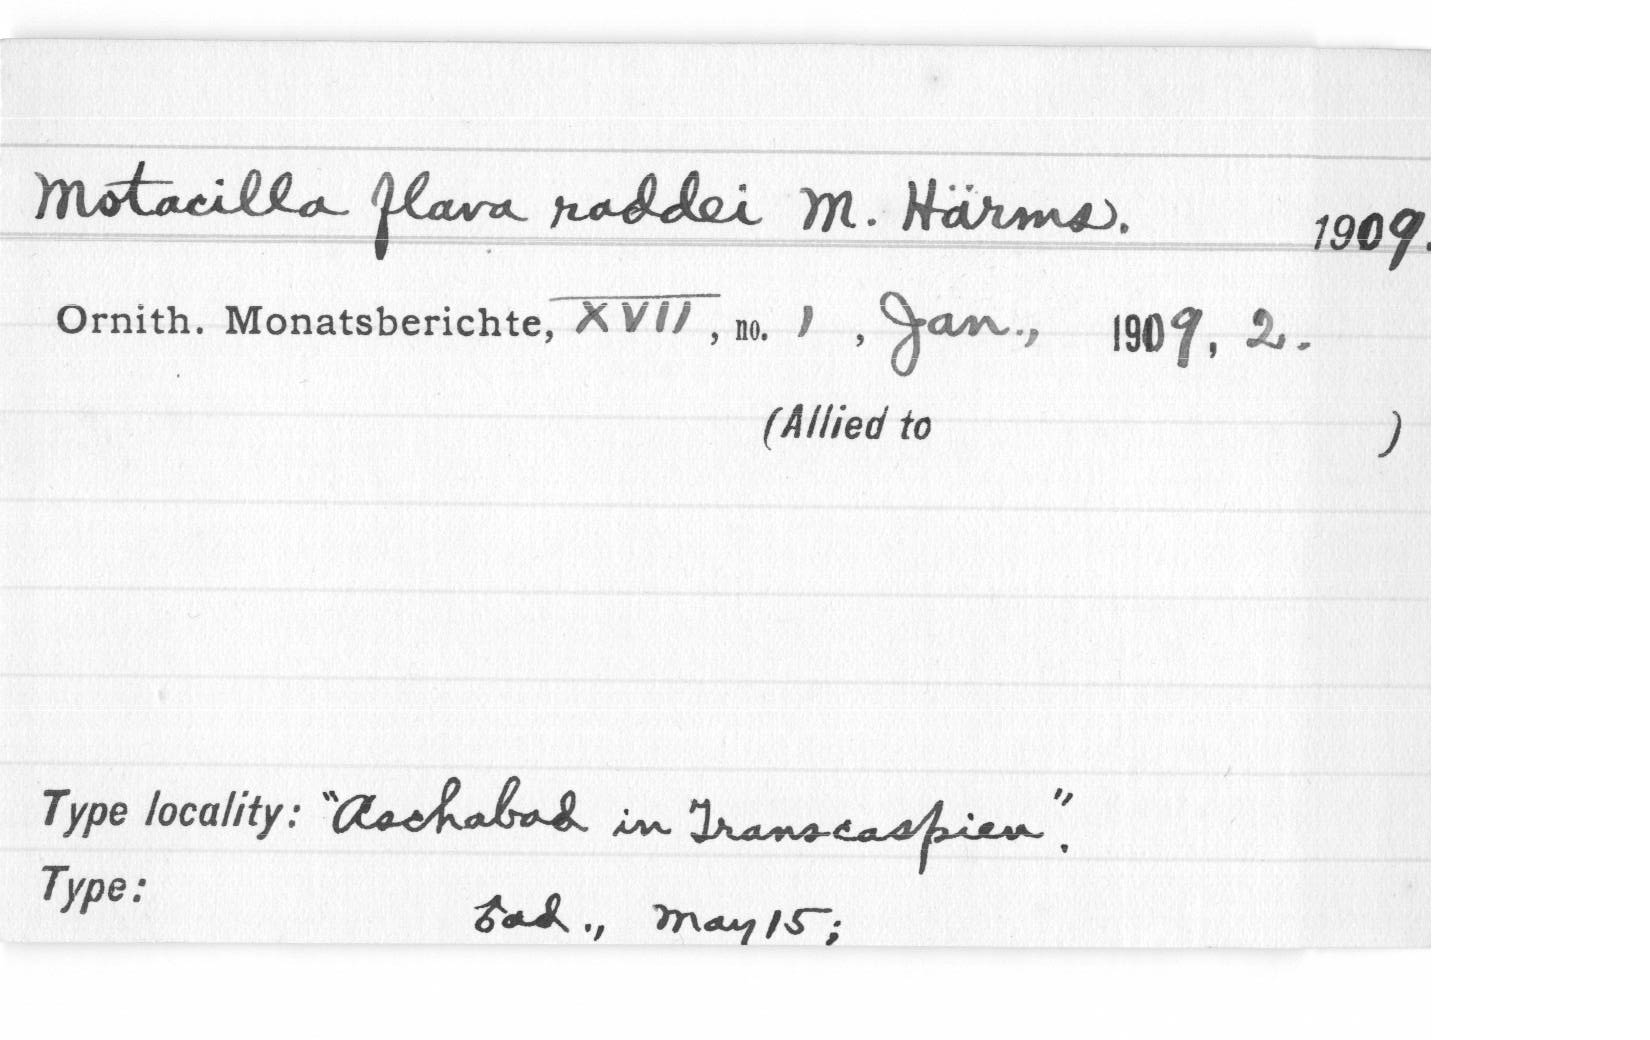 Motacilla flava raddei M. Härms. 1909.
Ornith. Monatsberichte, XVII, no. 1, Jan., 1909, 2.
(Allied to )
Type locality: "Aschabad in Transcaspien".
Type: ad., May 15;